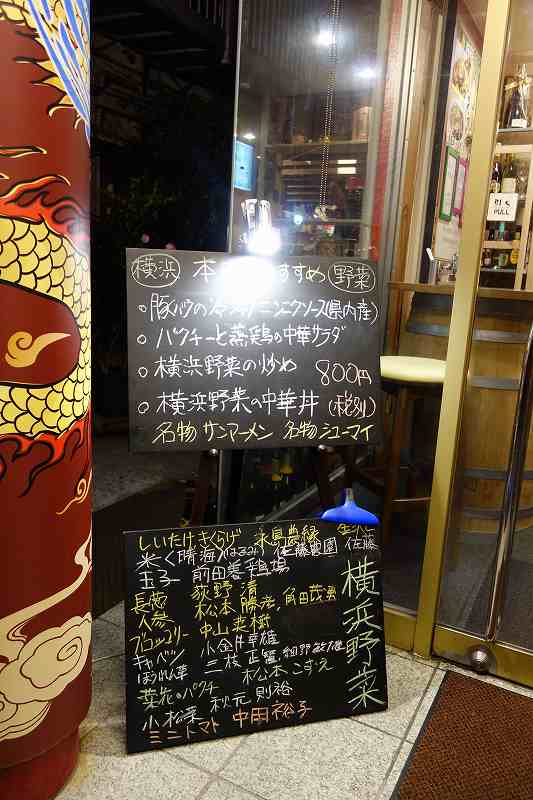 横浜 本 すすめ 野菜
○豚バラの ニンニクソース(県内産)
○パクチーと蒸鶏の中華サラダ
○横浜野菜の炒め 800円
○横浜野菜の中華丼 (税別)
名物サンマーメン 名物シューマイ
引く
PULL
しいたけきくらげ 永島農縁
米 晴海(はるみ) 佐藤農園 佐藤
玉子 前田養鶏場
長葱 荻野 清
人参 松本 勝
ブロッコリー 中山
キャベツ 小金井幸雄
ほうれん草 三枝
菜花・パクチ 松本こずえ
小松菜 秋元 則裕
ミニトマト 中田裕子
横浜野菜